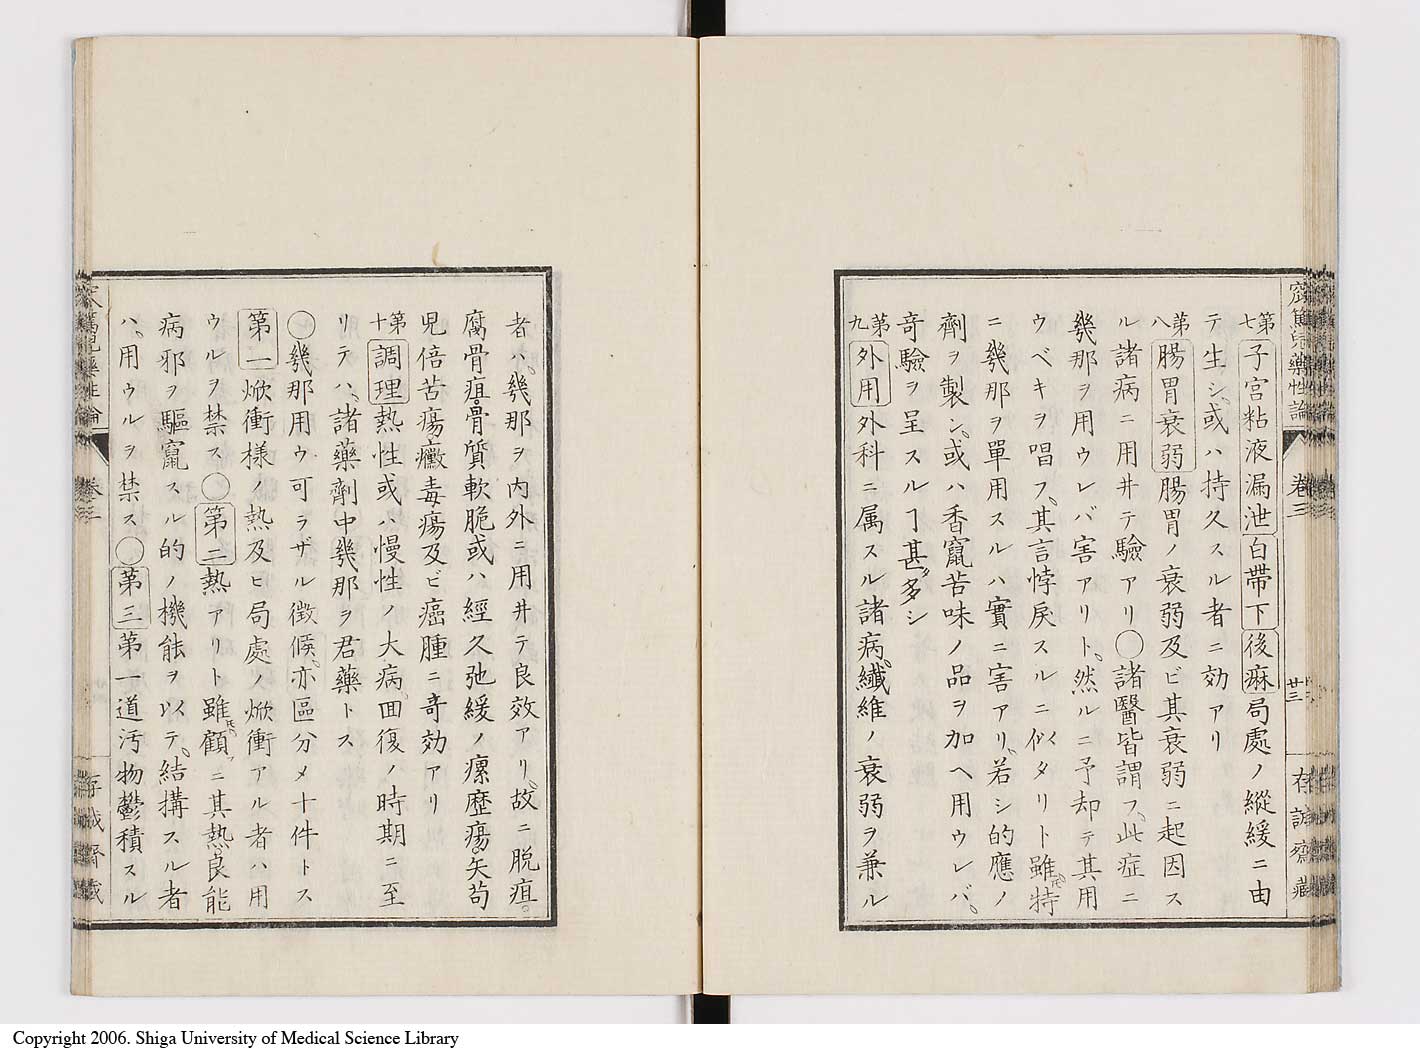 窊篤兒藥性論　卷三　廿三　存誠齋藏
第七子宮粘液漏泄白帶下後痳局處ノ縱緩ニ由
テ生シ、或ハ持久スル者ニ効アリ
第八腸胃衰弱腸胃ノ衰弱及ビ其衰弱ニ起因ス
ル諸病ニ用井テ驗アリ○諸醫皆謂フ、此症ニ
幾那ヲ用ウレバ害アリト、然ルニ予却テ其用
ウベキヲ唱フ、其言悖戾スルニ似タリト雖𪜈特
ニ幾那ヲ單用スルハ實ニ害アリ、若シ的應ノ
劑ヲ製シ、或ハ香竄苦味ノ品ヲ加ヘ用ウレバ、
奇驗ヲ呈スルヿ甚ダ多シ
第九外用外科ニ属スル諸病、纖維ノ衰弱ヲ兼ル
者ハ、幾那ヲ內外ニ用井テ良效アリ、故ニ脫疽、
腐骨疽、骨質軟脆或ハ經久弛緩ノ瘰癧瘍、矢苟
兒倍苦瘍、黴毒瘍及ビ癌腫ニ奇効アリ
第十調理熱性或ハ慢性ノ大病、囬復ノ時期ニ至
リテハ、諸藥劑中幾那ヲ君藥トス
○幾那用ウ可ラザル徵候、亦區分メ十件トス
第一焮衝様ノ熱及ビ局處ノ焮衝アル者ハ用
ウルヲ禁ス○第二熱アリト雖𪜈、顧ッニ其熱、良能
病邪ヲ驅竄スル的ノ機能ヲ以テ、結搆スル者
ハ、用ウルヲ禁ス○第三第一道汚物鬱積スル
窊篤兒藥性論　卷三　存誠齋藏
Copyright 2006. Shiga University of Medical Science Library